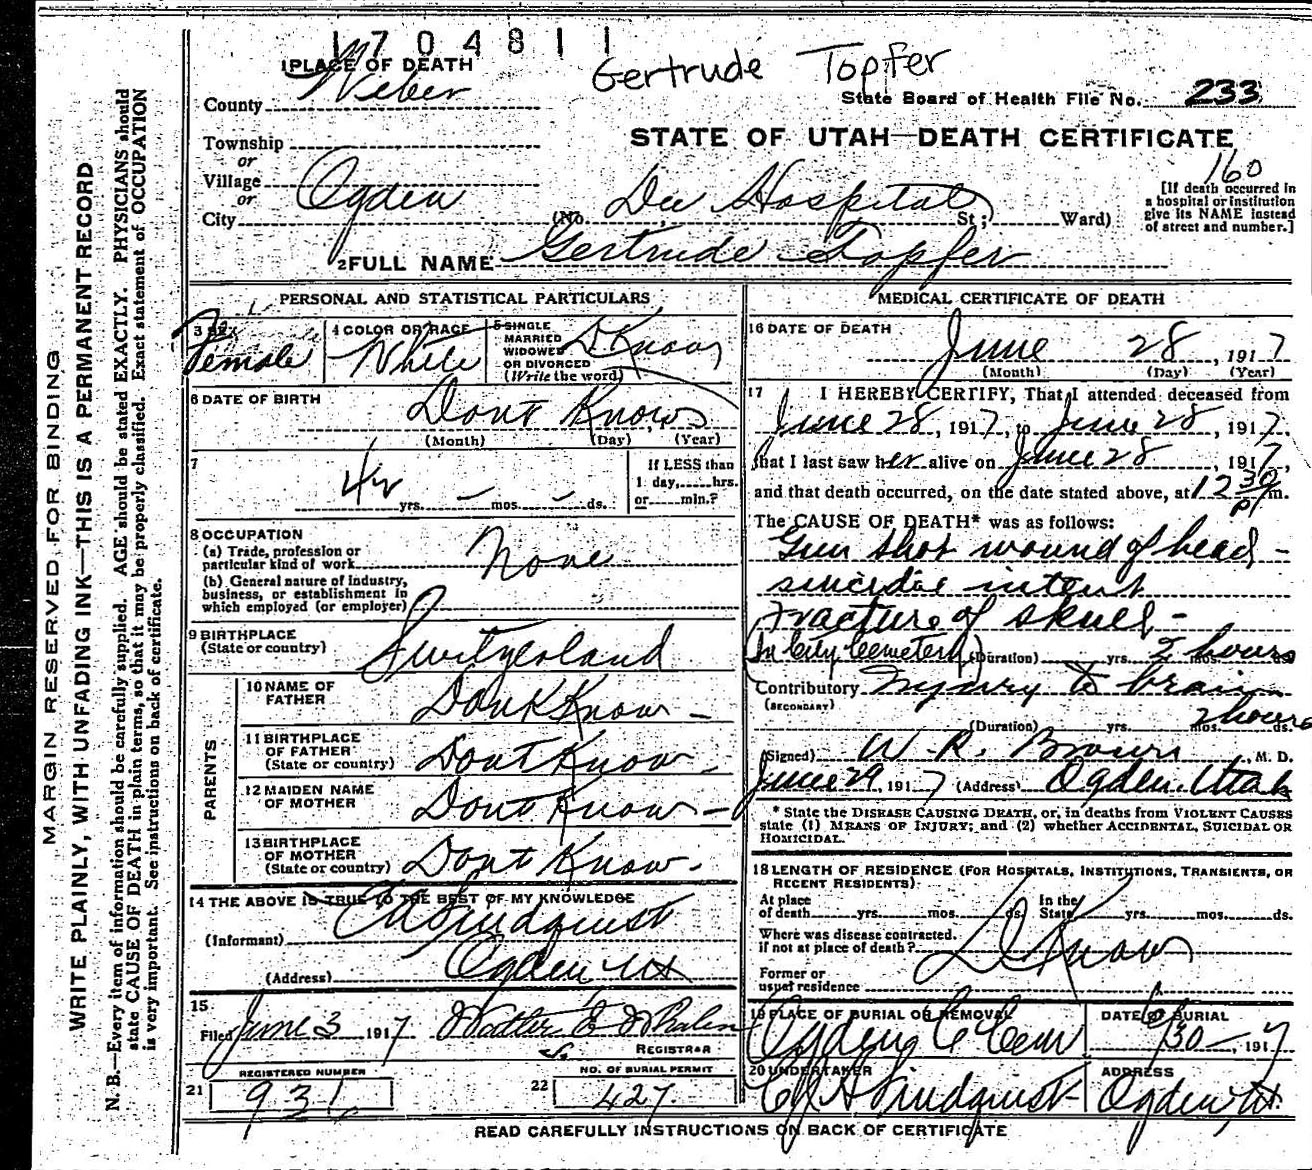 1704811
Gertrude Topfer
1 PLACE OF DEATH
County Weber
State Board of Health File No. 233
STATE OF UTAH—DEATH CERTIFICATE
160
Township
or
Village
or
City Ogden (No. Dee Hospital St; Ward)
[If death occurred in
a hospital or institution
give its NAME instead
of street and number.]
2 FULL NAME Gertrude Topfer
PERSONAL AND STATISTICAL PARTICULARS
3 SEX Female
4 COLOR OR RACE White
5 SINGLE
MARRIED
WIDOWED
OR DIVORCED
(Write the word) D Know
6 DATE OF BIRTH Dont Know
(Month) (Day) (Year)
7
42 yrs. — mos. — ds.
If LESS than
1 day, hrs.
or min.?
8 OCCUPATION
(a) Trade, profession or
particular kind of work None
(b) General nature of industry,
business, or establishment in
which employed (or employer)
9 BIRTHPLACE
(State or country) Switzerland
PARENTS
10 NAME OF
FATHER Dont Know —
11 BIRTHPLACE
OF FATHER
(State or country) Dont Know —
12 MAIDEN NAME
OF MOTHER Dont Know —
13 BIRTHPLACE
OF MOTHER
(State or country) Dont Know —
14 THE ABOVE IS TRUE TO THE BEST OF MY KNOWLEDGE
(Informant) Lindquist
(Address) Ogden Ut
15
Filed June 3 1917 Walter E Whalen
REGISTRAR
21 REGISTERED NUMBER
931
22 NO. OF BURIAL PERMIT
427
MEDICAL CERTIFICATE OF DEATH
16 DATE OF DEATH
June 28, 1917
(Month) (Day) (Year)
17 I HEREBY CERTIFY, That I attended deceased from
June 28, 1917, to June 28, 1917,
that I last saw her alive on June 28, 1917,
and that death occurred, on the date stated above, at 12 30 P m.
The CAUSE OF DEATH* was as follows:
Gun shot wound of head —
suicidal intent
Fracture of skull —
(In City Cemetery) (Duration) yrs. mos. ds. 2 hours
Contributory Injury to brain
(SECONDARY)
(Duration) yrs. mos. ds. 2 hours
(Signed) W. R. Brown, M. D.
June 29, 1917 (Address) Ogden, Utah
* State the DISEASE CAUSING DEATH, or, in deaths from VIOLENT CAUSES
state (1) MEANS OF INJURY; and (2) whether ACCIDENTAL, SUICIDAL OR
HOMICIDAL.
18 LENGTH OF RESIDENCE (FOR HOSPITALS, INSTITUTIONS, TRANSIENTS, OR
RECENT RESIDENTS)
At place
of death yrs. mos. ds. In the
State yrs. mos. ds.
Where was disease contracted.
if not at place of death? D Know
Former or
usual residence
19 PLACE OF BURIAL OR REMOVAL
Ogden C Cem
DATE OF BURIAL
6/30 —, 1917
20 UNDERTAKER
Lindquist
ADDRESS
Ogden Ut.
READ CAREFULLY INSTRUCTIONS ON BACK OF CERTIFICATE
MARGIN RESERVED FOR BINDING
WRITE PLAINLY, WITH UNFADING INK—THIS IS A PERMANENT RECORD
N. B.—Every item of information should be carefully supplied. AGE should be stated EXACTLY. PHYSICIANS should
state CAUSE OF DEATH in plain terms, so that it may be properly classified. Exact statement of OCCUPATION
is very important. See instructions on back of certificate.